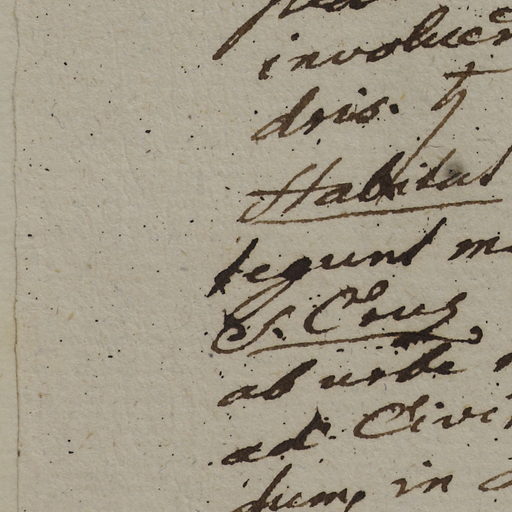 involucr
dris. ♄
Habitat
tegunt m
S. Crus,
ab urbe
ad Civi
dum, in